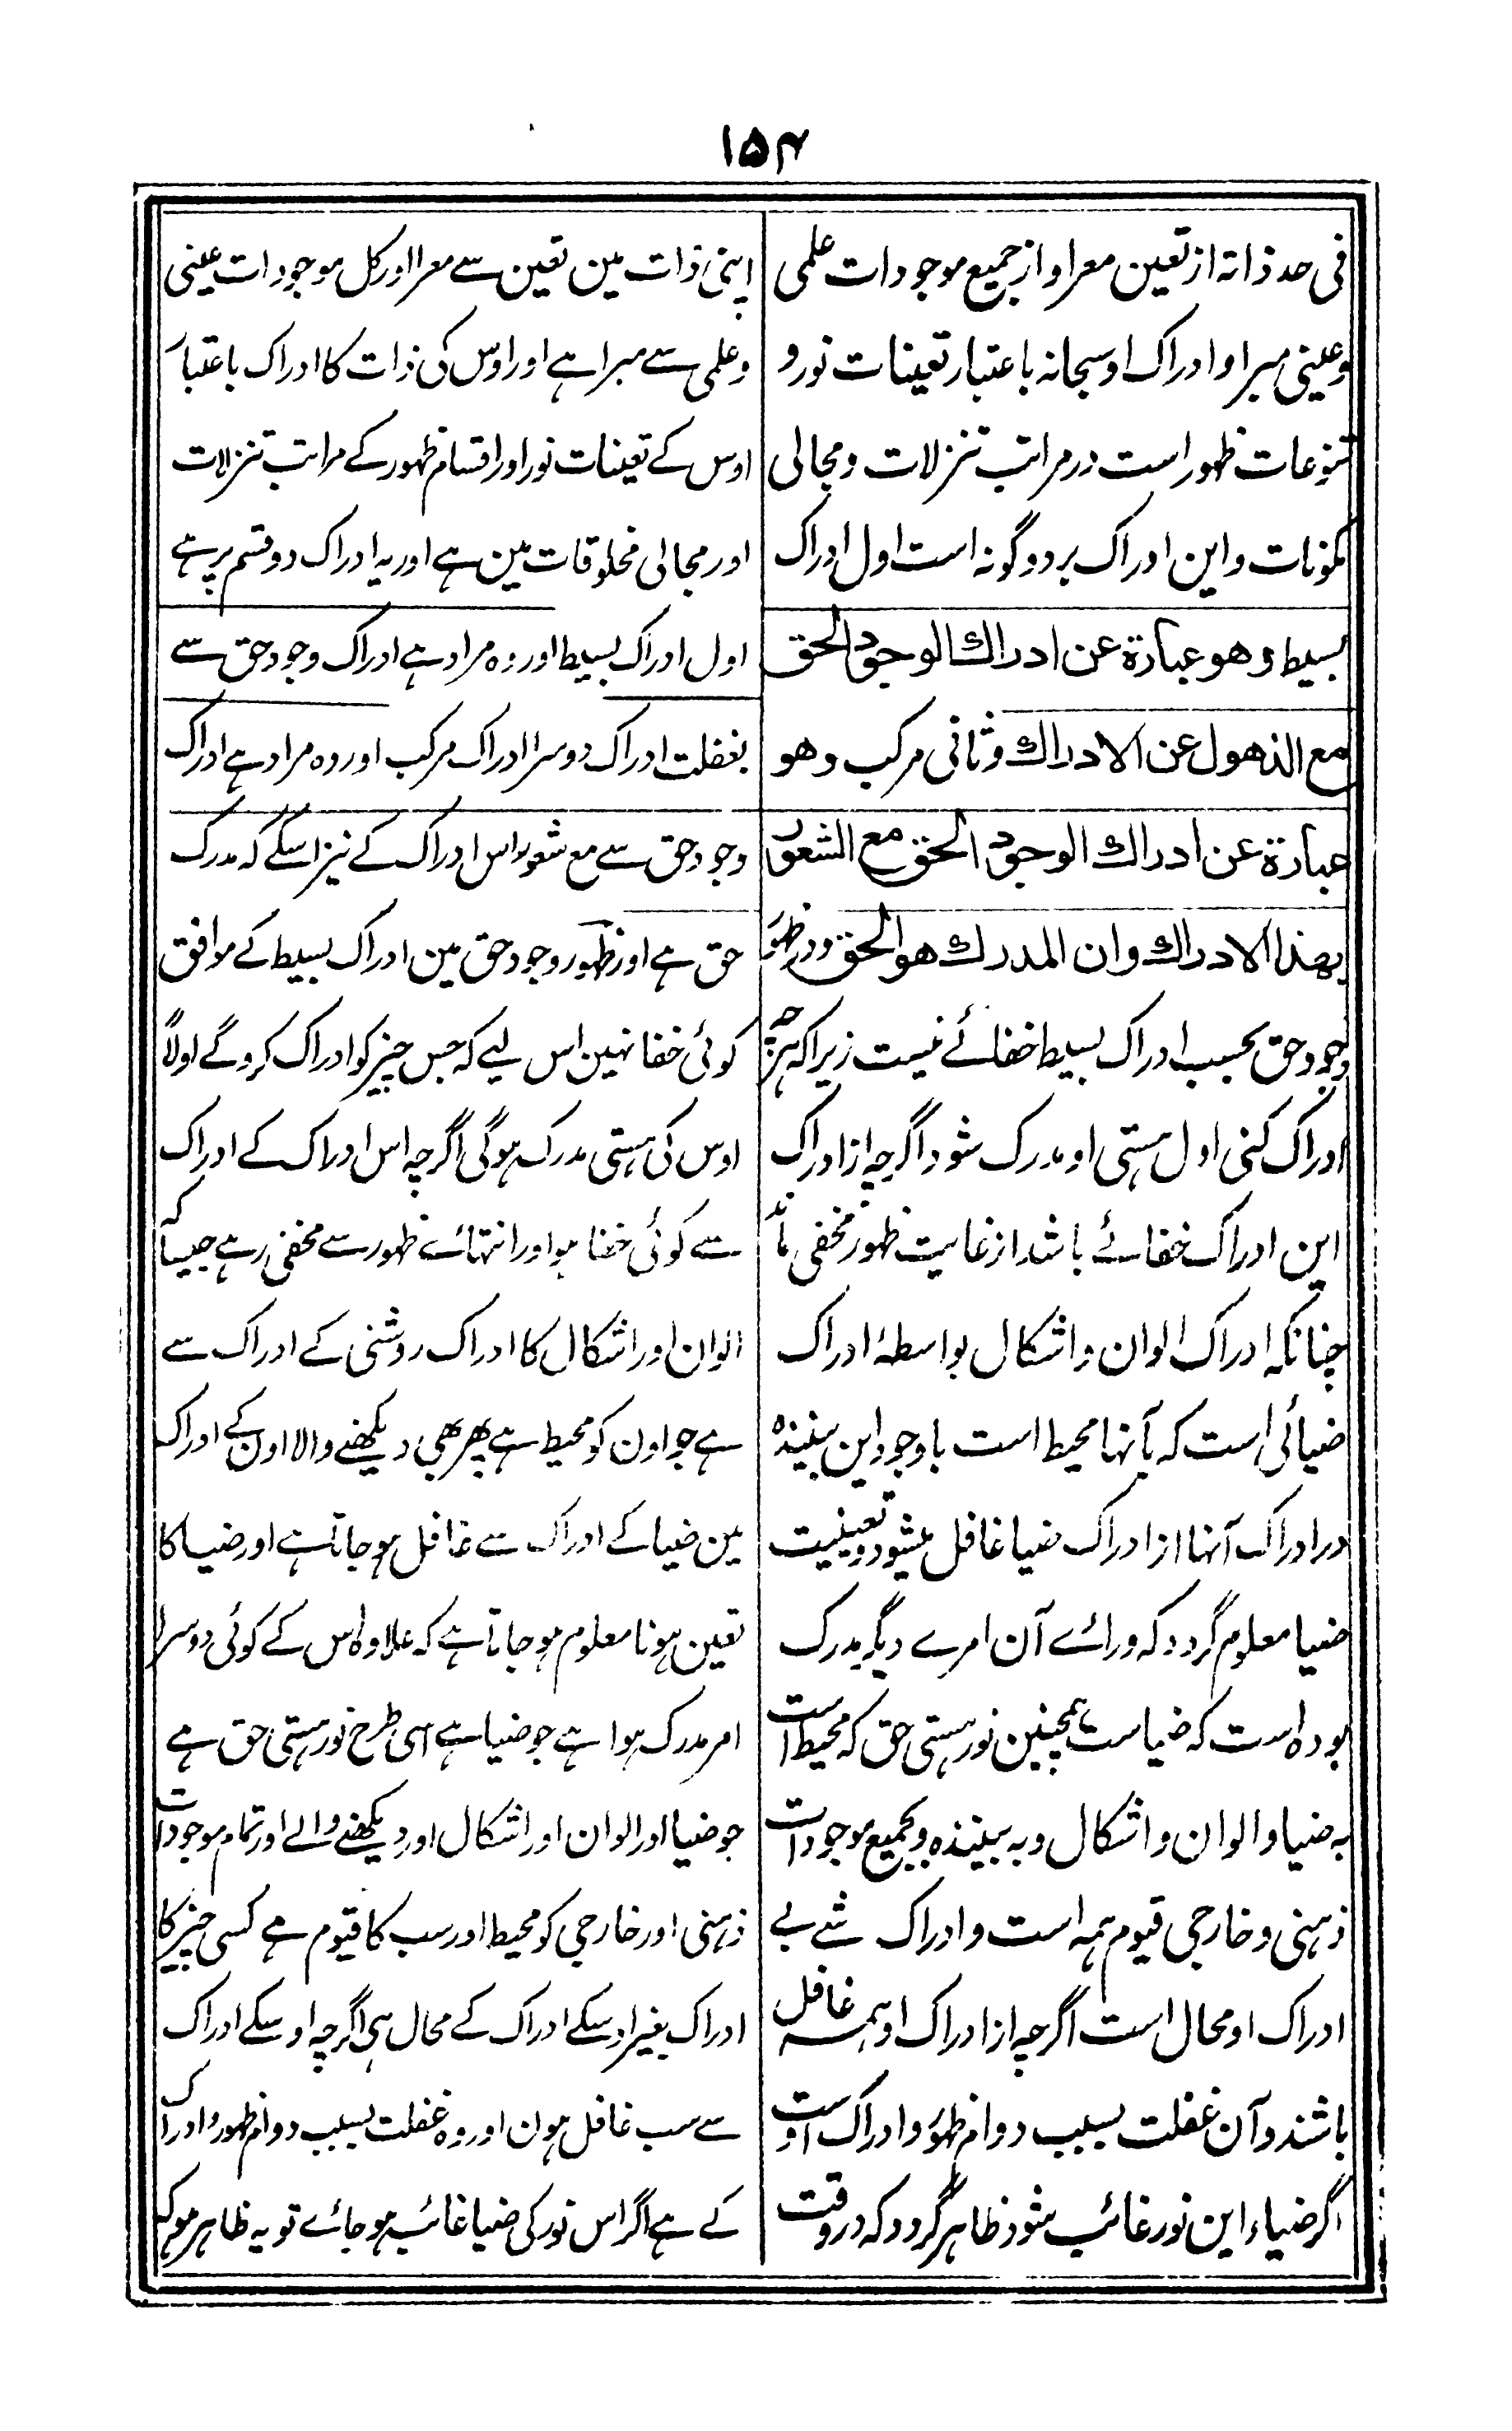 ۱۵۴
فی حد ذاته از تعین معرا و از جمیع موجودات علمی
و عینی مبرا و ادراک او سبحانه باعتبار تعینات نور و
تنوعات ظهور است در مراتب تنزلات و مجالی
مکونات و این ادراک بر دو گونه است اول ادراک
بسیط وهو عبارة عن ادراك الوجود الحق
مع الذهول عن الادراك و ثانی مرکب وهو
عبارة عن ادراك الوجود الحق مع الشعور
بهذا الادراك وان المدرك هو الحق و در ظهور
وجود حق بحسب ادراک بسیط خفائے نیست زیرا که هر چه
ادراک کنی اول هستی او مدرک شود اگرچه از ادراک
این ادراک خفائے باشد از غایت ظهور مخفی ماند
چنانکه ادراک الوان و اشکال بواسطهٔ ادراک
ضیائی است که بآنها محیط است باوجود این بیننده
در ادراک آنها از ادراک ضیا غافل میشود و تعینیت
ضیا معلوم گردد که ورائے آن امرے دیگر مدرک
بوده است که ضیاست همچنین نور هستی حق که محیط است
به ضیا و الوان و اشکال و به بیننده و بجمیع موجودات
ذهنی و خارجی قیوم همه است و ادراک شے بے
ادراک او محال است اگرچه از ادراک او همه غافل
باشند و آن غفلت بسبب دوام ظهور و ادراک اوست
اگر ضیاء این نور غائب شود ظاهر گردد که در وقت
اپنی ذات مین تعین سے معرا اور کل موجودات عینی
و علمی سے مبرا ہے اور اوس کی ذات کا ادراک باعتبار
اوس کے تعینات نور اور اقسام ظہور کے مراتب تنزلات
اور مجالی مخلوقات مین ہے اور یہ ادراک دو قسم پر ہے
اول ادراک بسیط اور وہ مراد ہے ادراک وجود حق سے
بغفلت ادراک دوسرا ادراک مرکب اور وہ مراد ہے ادراک
وجود حق سے مع شعور اس ادراک کے نیز اسکے کہ مدرک
حق ہے اور ظہور وجود حق مین ادراک بسیط کے موافق
کوئی خفا نہین اس لیے کہ جس چیز کو ادراک کرو گے اولاً
اوس کی ہستی مدرک ہوگی اگرچہ اس ادراک کے ادراک
سے کوئی خفا ہو اور انتہائے ظہور سے مخفی رہے جیسا کہ
الوان اور اشکال کا ادراک روشنی کے ادراک سے
ہے جو اون کو محیط ہے پھر بھی دیکھنے والا اون کے ادراک
مین ضیا کے ادراک سے غافل ہو جاتا ہے اور ضیا کا
تعین ہونا معلوم ہو جاتا ہے کہ علاوہ اس کے کوئی دوسرا
امر مدرک ہوا ہے جو ضیا ہے اسی طرح نور ہستی حق ہے
جو ضیا اور الوان اور اشکال اور دیکھنے والے اور تمام موجودات
ذہنی اور خارجی کو محیط اور سب کا قیوم ہے کسی چیز کا
ادراک بغیر اوسکے ادراک کے محال ہی اگرچہ اوسکے ادراک
سے سب غافل ہون اور وہ غفلت بسبب دوام ظہور و ادراک
کے ہے اگر اس نور کی ضیا غائب ہو جائے تو یہ ظاہر ہو کہ